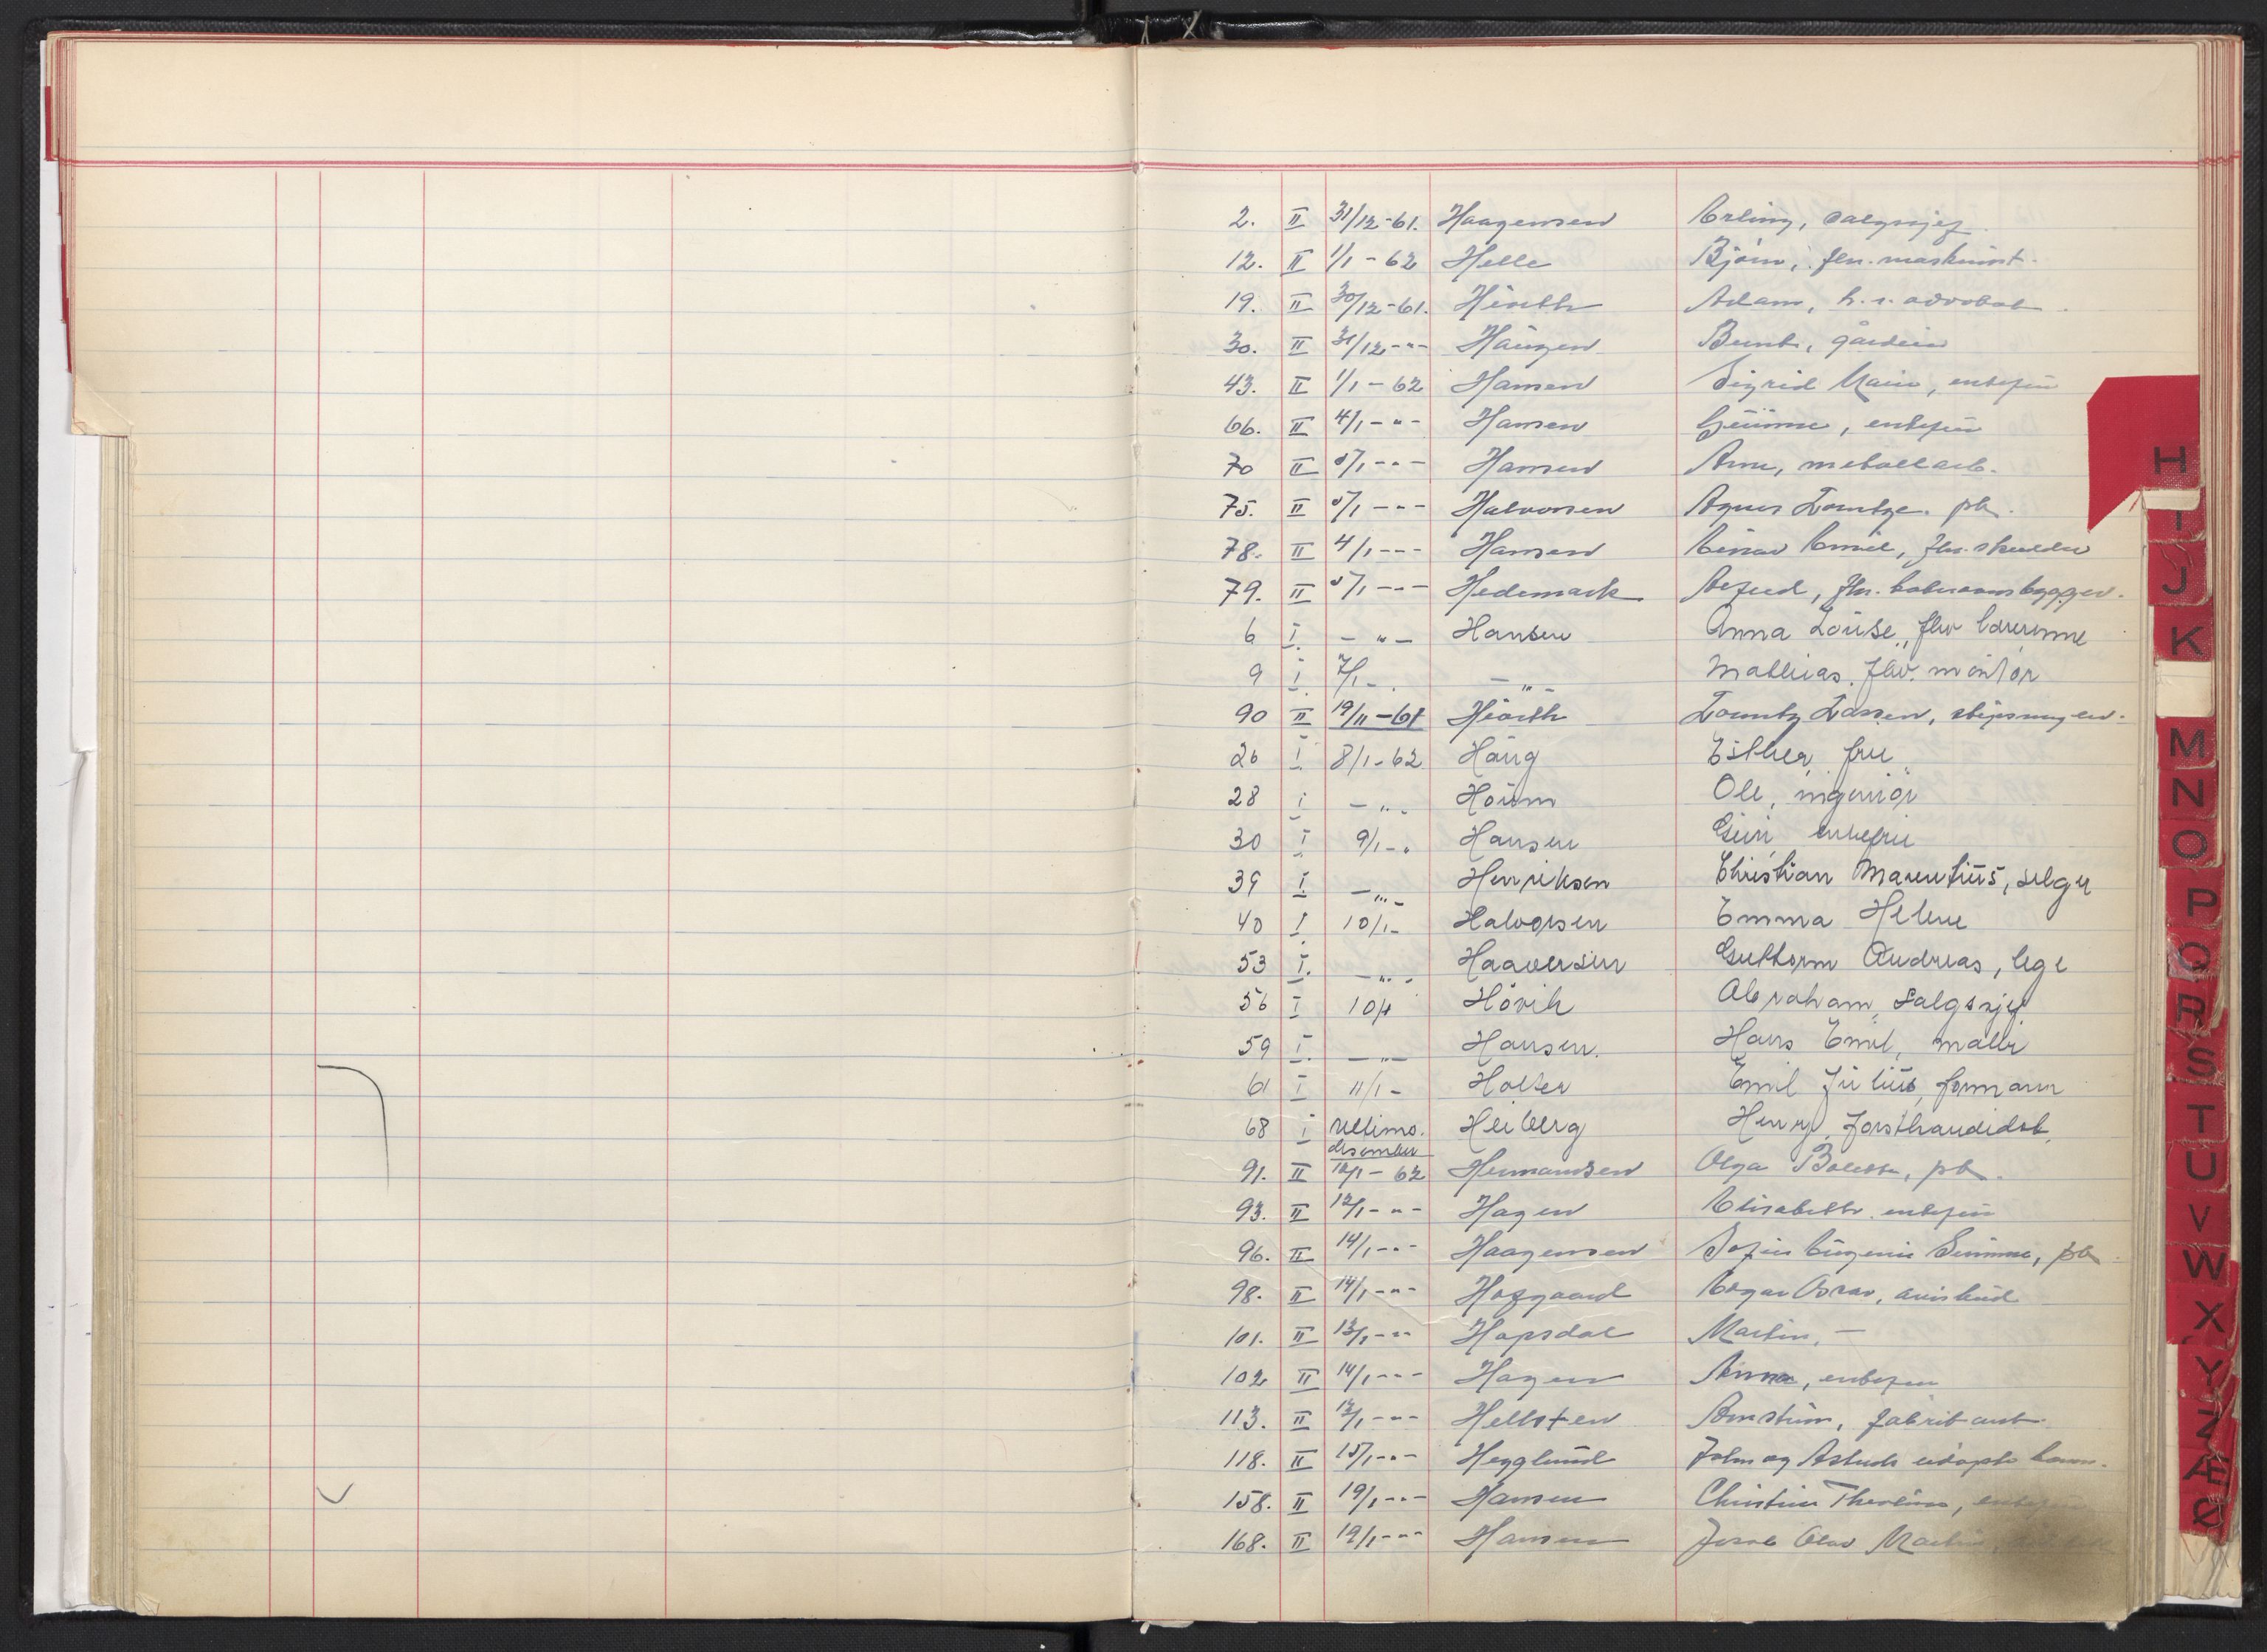 2. II 31/12-61. Haagensen Erling, salgssjef.
12. II 1/1-62 Helle Bjørn, fhv. maskinist.
19. II 30/12-61. Hiorth Adam, h.r. advokat
30. II 31/12-"- Haugen Bernt, gårdeier
43. II 1/1-62 Hansen Sigrid Marie, enkefru
66. II 4/1-"- Hansen Gunda, enkefru
70 II 5/1-"- Hansen Arne, metallarb.
75. II 5/1-"- Halvorsen Agnes Lorentze. pb.
78. II 4/1-"- Hansen Einar Emil, fhv. skredder
79. II 5/1-"- Hedemark Alfred, fhv. bokvognbygger.
6 I. -"- Hansen Anna Louise, fhv lærerinne
9 I. 7/1-. -"- Mathias. fhv. montør
90 II 19/11-61 Hiorth Lorentz Lassen, skipsingen.
26 I. 8/1-62 Haug Esther, fru
28 I -"- Hörm Ole, ingeniør
30 I. 9/1-. Hansen Guri, enkefru
39 I. -"- Henriksen Christian Marentius, selger
40 I. 10/1- Halvorsen Emma Helene
53 I. -"- Haaversen Guthorm Andreas, lege
56 I 10/1 Hövik Abraham, Salgssjef
59 I. -"- Hansen. Hans Emil, maler
61 I 11/1- Holter Emil Julius, formann
68 I ultimo. desember Heiberg Henry, Forstkandidat
91. II 10/1-62 Hermansen Olga Bolette, pb.
93. II 12/1-"- Hagen Elisabeth. enkefru
96. II 14/1-"- Haagensen Sofie Eugenie, pb
98. II 14/1-"- Hofgaard Edgar Oskar, avisbud
101. II 13/1-"- Hopsdal Martin, -
102 II 14/1-"- Hagen Anna, enkefru
113. II 12/1-"- Hellsten fabrikant.
118. II 15/1-"- Hegglund John og Astrids udøpte barn.
158. II 19/1-"- Hansen Christine Theoline,
168. II 19/1-"- Hansen Jacob Olav Martin,
H
I
J
K
M
N
O
P
Q
R
S
T
U
V
W
X
Y
Z
Æ
Ø